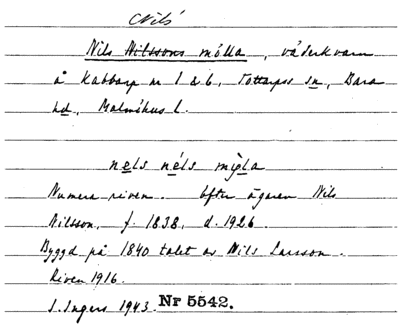 Nils
Nils Nilssons mölla, väderkvarn
å Kabbarp nr 1 & 6, Tottarps sn, Bara
hd, Malmöhus l.
nels néls mig̀la
Numera riven. Efter ägaren Nils
Nilsson, f. 1838, d. 1926.
Byggd på 1840 talet av Nils Larsson.
Riven 1916.
I. Ingers 1943. Nr 5542.